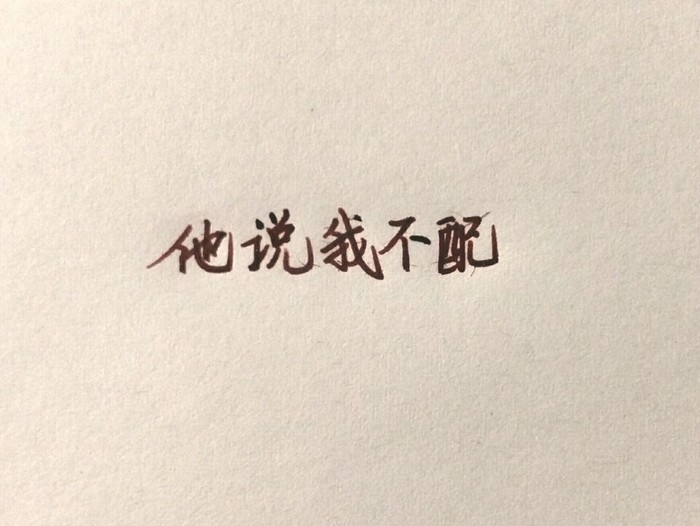 他说我不配